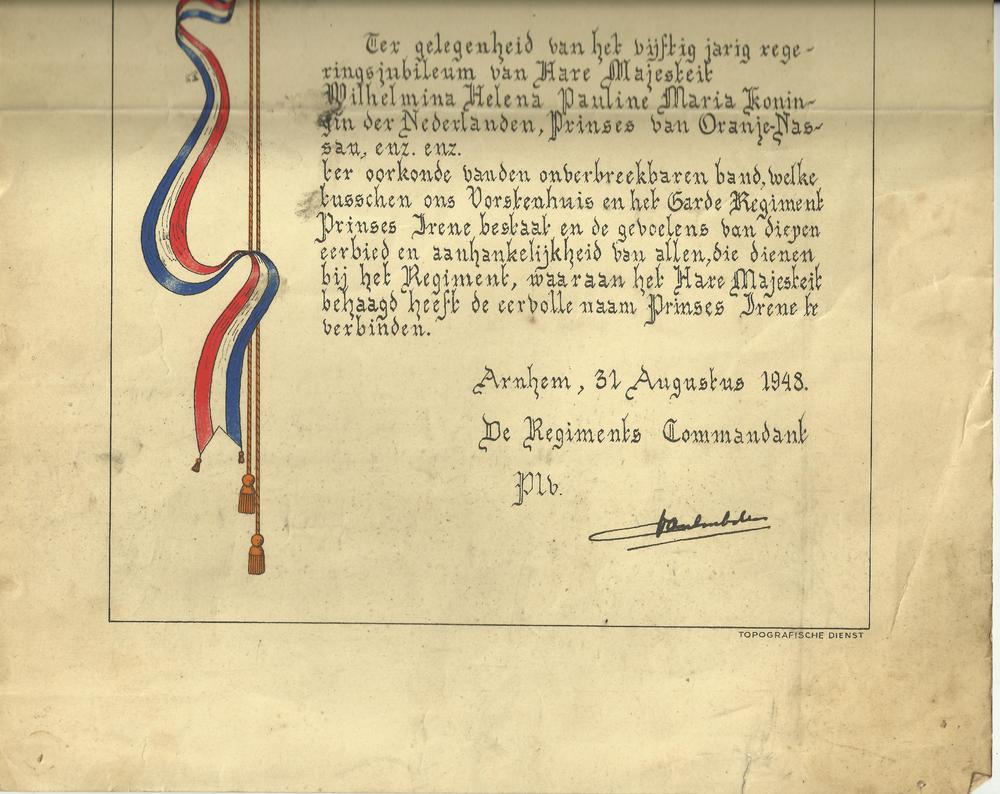 Ter gelegenheid van het vijftig jarig rege-
ringsjubileum van Hare Majesteit
Wilhelmina Helena Pauline Maria Konin-
gin der Nederlanden, Prinses van Oranje-Nas-
sau, enz. enz.
ter oorkonde vanden onverbreekbaren band, welke
tusschen ons Vorstenhuis en het Garde Regiment
Prinses Irene bestaat en de gevoelens van diepen
eerbied en aanhankelijkheid van allen, die dienen
bij het Regiment, waaraan het Hare Majesteit
behaagd heeft de eervolle naam Prinses Irene te
verbinden.
Arnhem, 31 Augustus 1948.
De Regiments Commandant
Plv.
TOPOGRAFISCHE DIENST